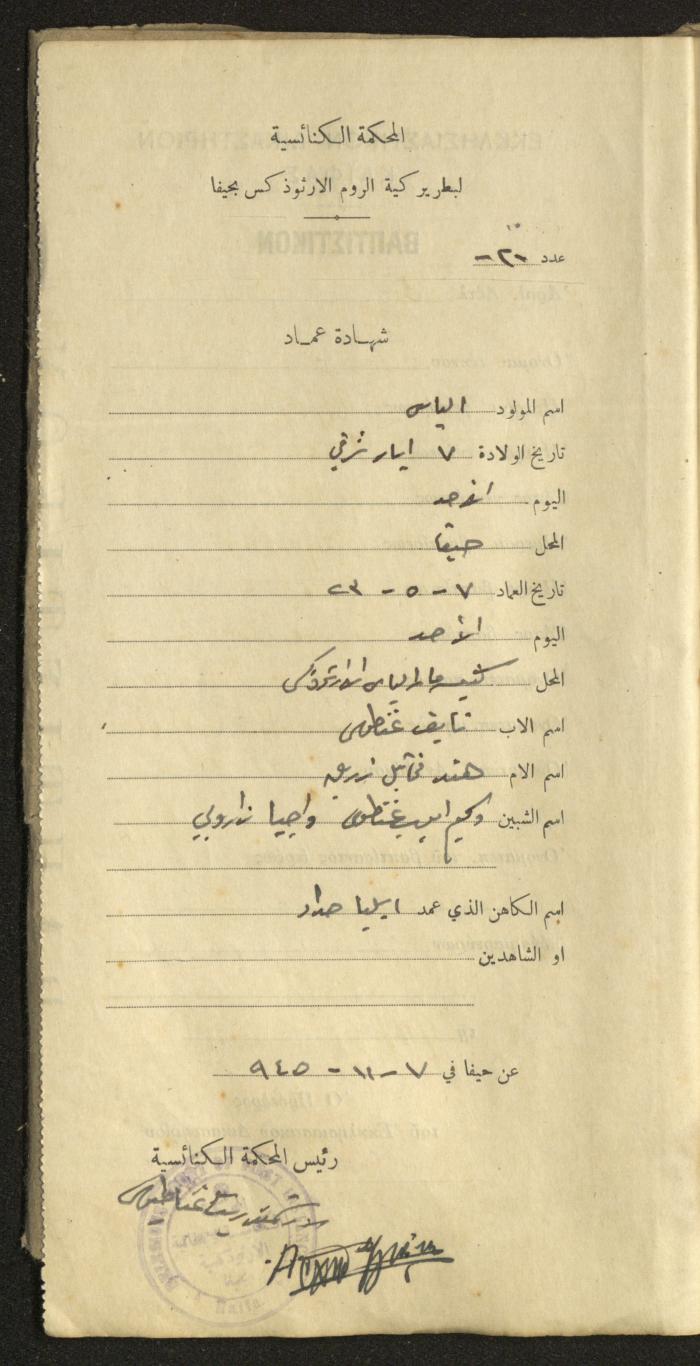 المحكمة الكنائسية
لبطريركية الروم الارثوذكس بحيفا
عدد -٢٠-
شهادة عماد
اسم المولود الياس
تاريخ الولادة ٧ ايار شرقي
اليوم الأحد
المحل حيفا
تاريخ العماد ٧ - ٥ - ٢٣
اليوم الأحد
المحل كنيسة مار الياس الارثوذكس
اسم الاب نايف غنطوس
اسم الام هند
اسم الشبين غنطوس
اسم الكاهن الذي عمد ايليا حداد
او الشاهدين
عن حيفا في ٧ - ١١ - ٩٤٥
رئيس المحكمة الكنائسية
Haifa